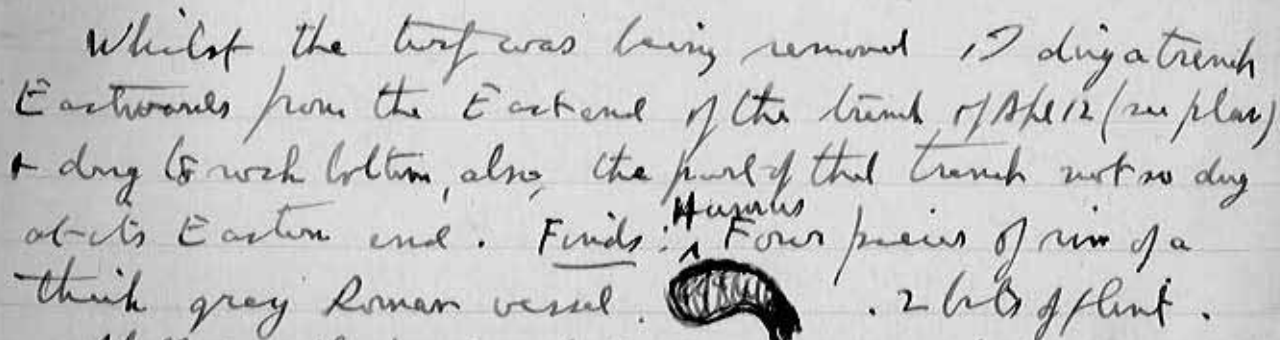 Whilst the turf was being removed I dug a trench
Eastwards from the East end of the trench of Apl 12 (see plan)
+ dug to rock bottom, also, the part of that trench not so dug
at its Eastern end. Finds: Humus Four pieces of rim of a
thick grey Roman vessel. . 2 bits of flint.